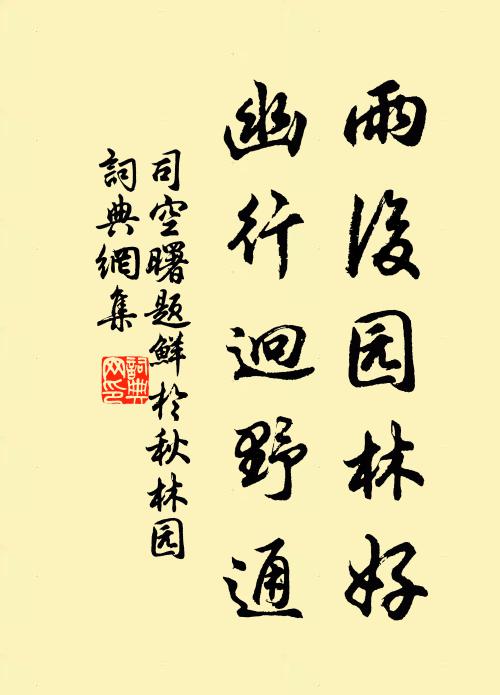 雨後园林好
幽行迥野通
司空曙题鲜於秋林园
詞典網集
詞典网印